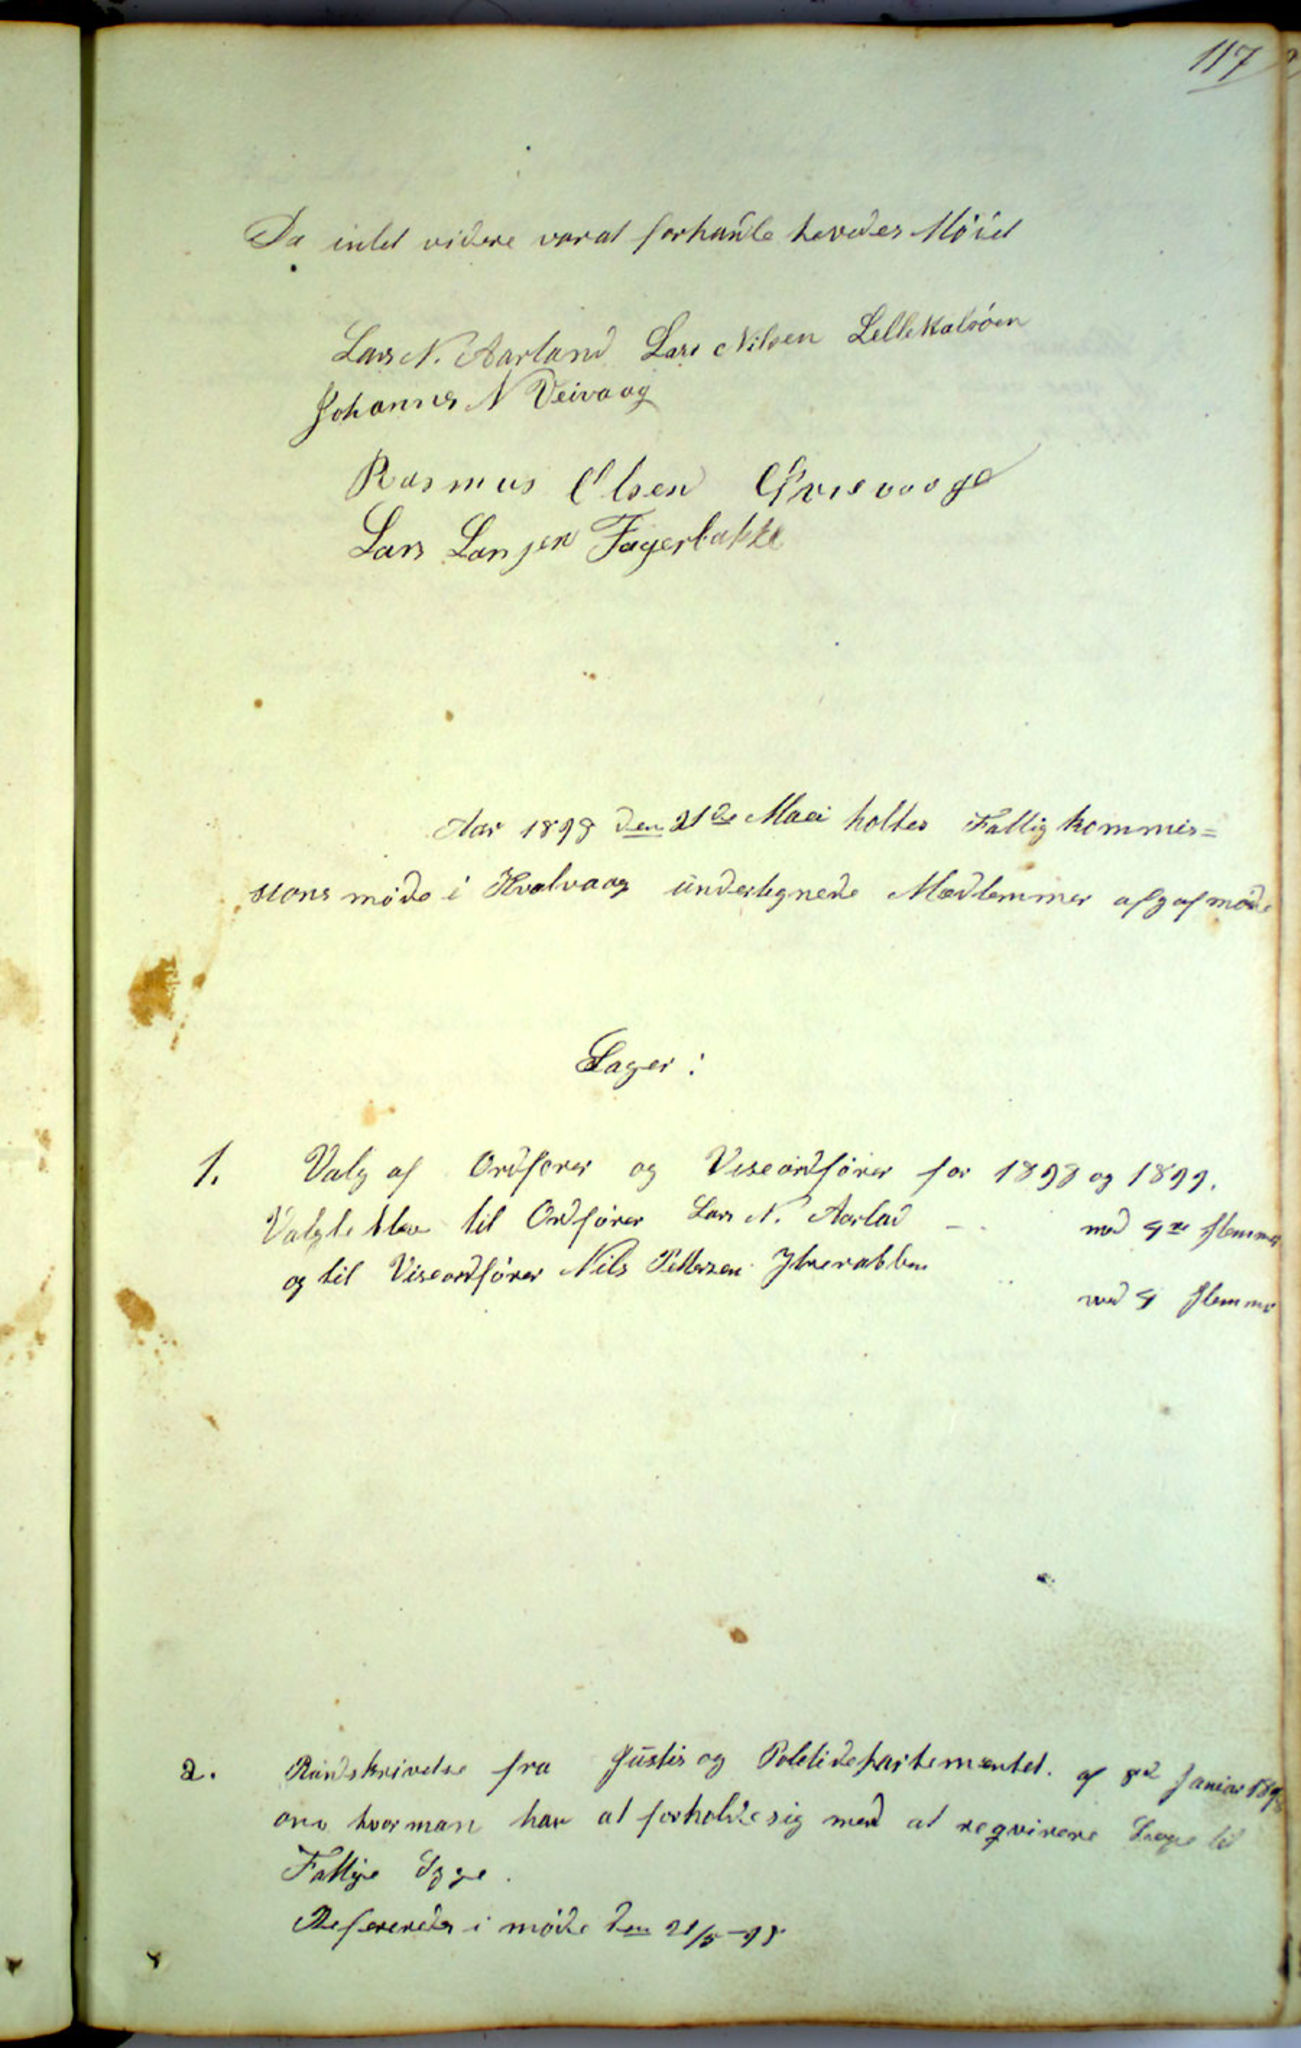 117
Da intet videre var at forhanle hevedes Möiet
Lars N. Aarland Lars Nilsen Lellekalsöen
Johannes N Veivaag
Rasmus Olsen
Lars Larsen Fagerbakke
Aar 1898 den 21de Maai holtes Fattig kommis=
sions möde i Hvalvaag undertegnede Medlemmer
Sager:
1. Valg af Ordförer og Viseordförer for 1898 og 1899.
Valgte blev til Ordförer Lars N. Aarlad — med 4re stemmer
og til Viseordförer Nils Pettersen Ytrerabben
med 4 stemmer
2. Rundskrivelse fra Justis og Politidepartementet. af 8de Januar 1898
om hvor man har at forholde sig med at reqvirere Læge til
Fattige Syge.
Refereredes i möde den 21/5-98